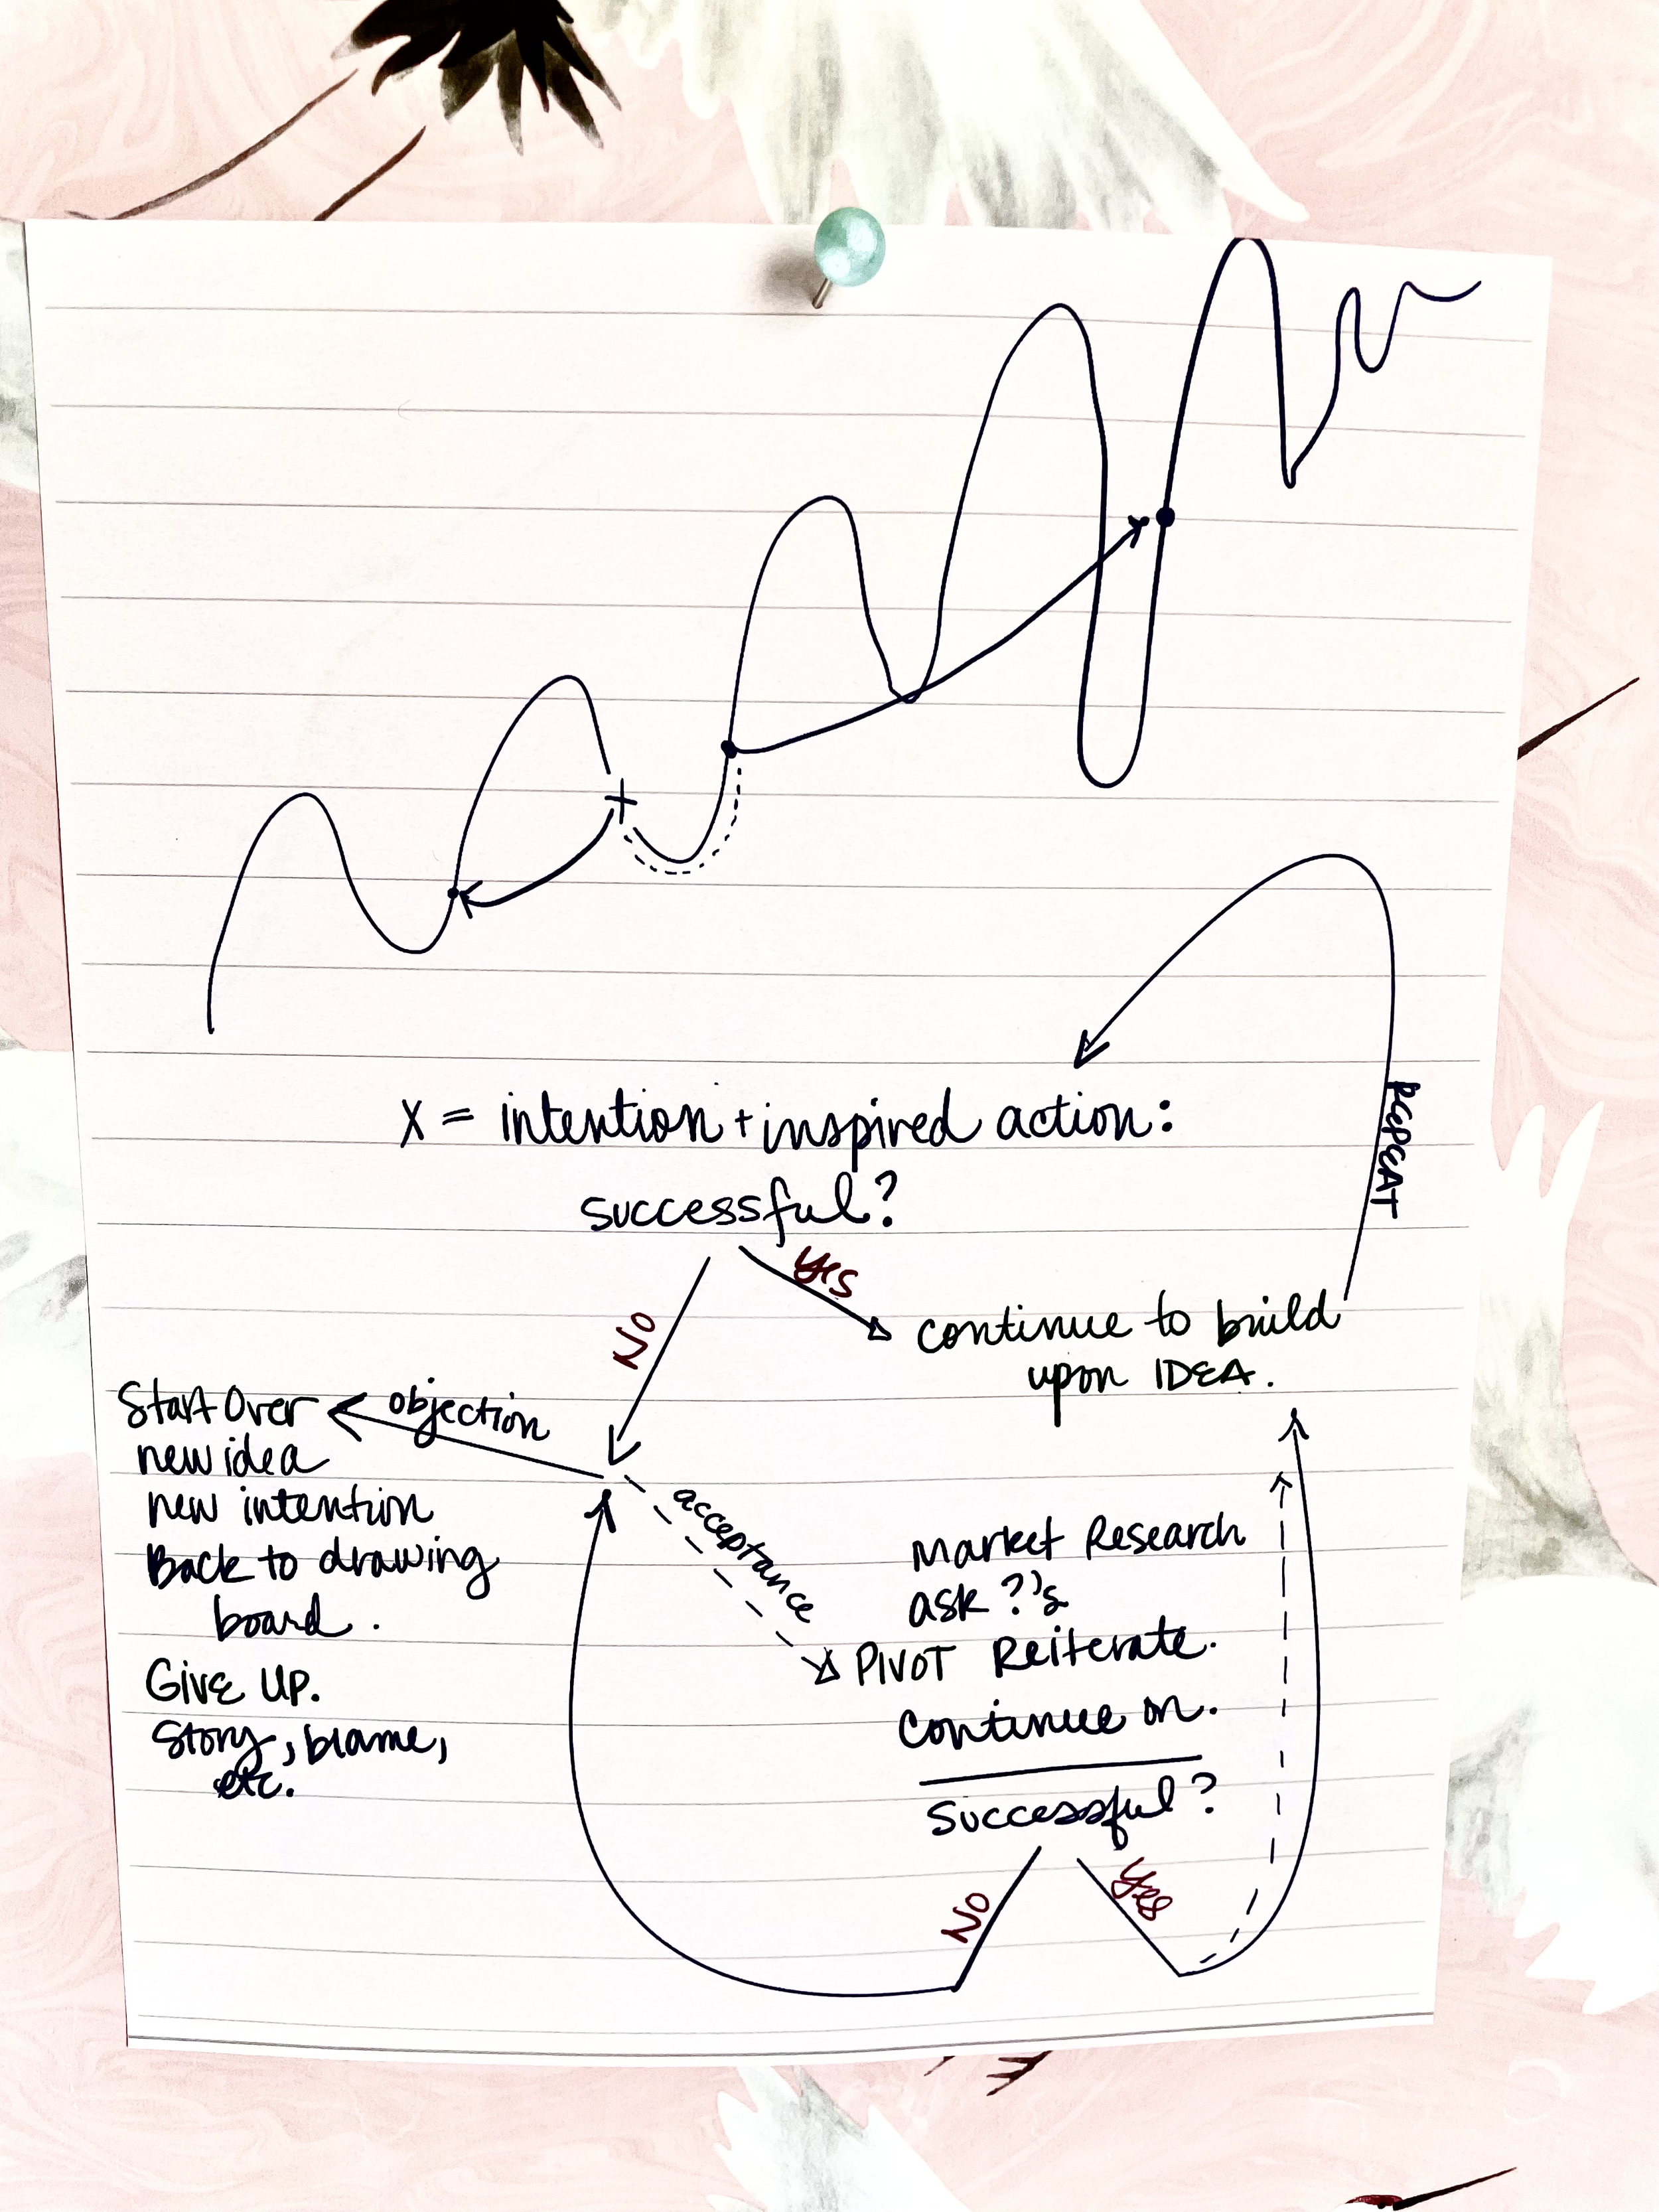 X = intention + inspired action:
successful?
Yes
No
continue to build
upon IDEA.
REPEAT
objection
Start Over
new idea
new intention
Back to drawing
board.
Give Up.
Story, blame,
etc.
acceptance
Market Research
ask ?'s
PIVOT Reiterate.
Continue on.
Successful?
No
Yes